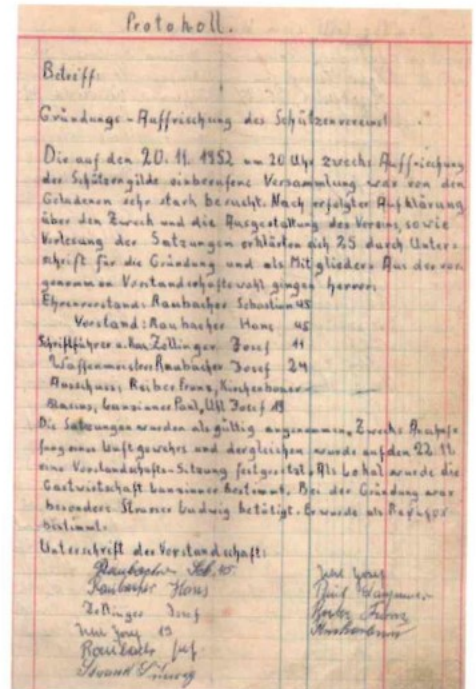 Protokoll.
Betreff:
Gründungs-Auffrischung des Schützenvereins
Die auf den 20. 11. 1952 um 20 Uhr zwecks Auffrischung
der Schützengilde einberufene Versammlung war von den
Geladenen sehr stark besucht. Nach erfolgter Aufklärung
über den Zweck und die Ausgestaltung des Vereins, sowie
Verlesung der Satzungen erklärten sich 25 durch Unter-
schrift für die Gründung und als Mitglieder. Aus der vor-
genommenen Vorstandschaftswahl gingen hervor:
Ehrenvorstand: Raubacher Sebastian 45
Vorstand: Raubacher Hans 45
Schriftführer u. Kas. Zellinger Josef 11
Waffenmeister Raubacher Josef 24
Ausschuss, Reiber Franz, Kirchenbauer
Paul, Josef 19
Die Satzungen wurden als gültig angenommen. Zwecks
eines Luftgewehrs und dergleichen wurde auf den 22. 11.
eine Vorstandschafts-Sitzung festgesetzt. Als Lokal wurde die
Gastwirtschaft bestimmt. Bei der Gründung war
besonders Strasser Ludwig betätigt. Er wurde als
bestimmt.
Unterschrift der Vorstandschaft:
Raubacher
Raubacher Hans
Zellinger Josef
19
Raubacher
Franz